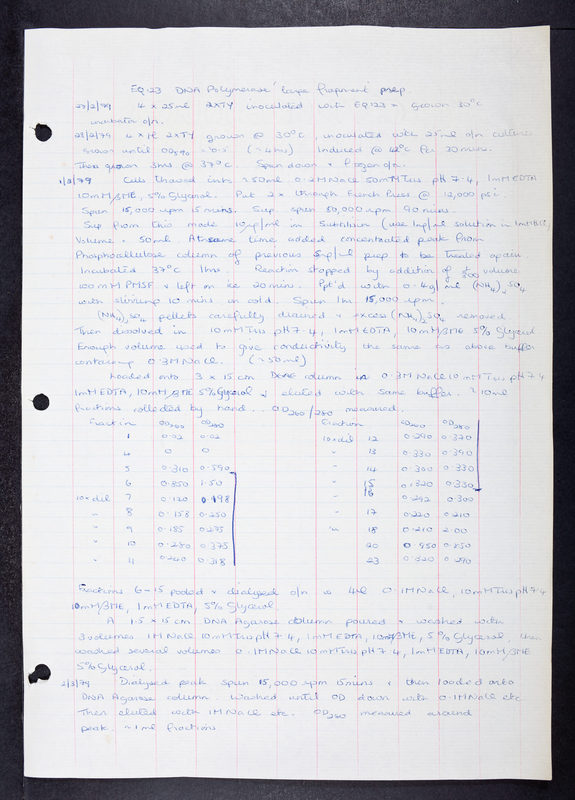 EQ123 DNA Polymerase 'large fragment' prep.
27/2/79 4 x 25ml 2xTY inoculated with EQ123 + grown 30°C
incubator o/n.
28/2/79 4 x 1l 2xTY grown @ 30°C, inoculated with 25ml o/n culture
Grown until ~0.5 (~4hrs) Induced @ 42°C for 20mins.
Then grown 3hrs @ 37°C. Spun down + frozen o/n.
1/3/79 Cells thawed into ~50ml 0.2M NaCl 50mM Tris pH 7.4, 1mM EDTA
10mM βME, 5% Glycerol. Put 2x through French Press @ 12,000 psi
Spun 15,000 rpm 15mins. Sup. spun 50,000 rpm 90 mins.
Sup from this made 10µg/ml in Subtilisin (use 1mg/ml solution in
Volume = 50ml. At same time added concentrated peak from
Phosphocellulose column of previous prep to be treated again
Incubated 37°C 1hr. Reaction stopped by addition of volume
100mM PMSF + left on ice 20 mins. Ppt'd with 0.4g/ml (NH4)2SO4
with stirring 10 mins in cold. Spun 1hr 15,000 rpm.
(NH4)2SO4 pellets carefully drained + excess (NH4)2SO4 removed
Then dissolved in 10mM Tris pH 7.4, 1mM EDTA, 10mM βME 5% Glycerol
Enough volume used to give conductivity the same as above buffer
containing 0.3M NaCl. (~50ml)
Loaded onto 3 x 15cm DEAE column in 0.3M NaCl 10mM Tris pH 7.4
1mM EDTA, 10mM βME 5% Glycerol + eluted with same buffer. ~10ml
fractions collected by hand. OD260/280 measured.
Fraction OD260 OD280 Fraction OD260 OD280
1 0.02 0.02 10x dil 12 0.290 0.370
4 0 0 " 13 0.330 0.390
5 0.310 0.590 " 14 0.300 0.330
6 0.850 1.50 " 15 0.320 0.330
10x dil 7 0.120 0.198 " 16 0.292 0.300
" 8 0.158 0.250 " 17 0.220 0.210
" 9 0.185 0.275 " 18 0.210 2.00
" 10 0.280 0.375 20 0.950 0.850
" 11 0.240 0.318 23 0.320 0.290
Fractions 6-15 pooled + dialysed o/n vs 4l 0.1M NaCl, 10mM Tris pH 7.4
10mM βME, 1mM EDTA, 5% Glycerol.
A 1.5 x 15cm DNA Agarose column poured + washed with
3 volumes 1M NaCl 10mM Tris pH 7.4, 1mM EDTA, 10mM βME, 5% Glycerol, then
washed several volumes 0.1M NaCl 10mM Tris pH 7.4, 1mM EDTA, 10mM βME
5% Glycerol.
2/3/79 Dialysed peak spun 15,000 rpm 15mins + then loaded onto
DNA Agarose column. Washed until OD down with 0.1M NaCl etc
Then eluted with 1M NaCl etc. OD280 measured around
peak. ~1ml fractions